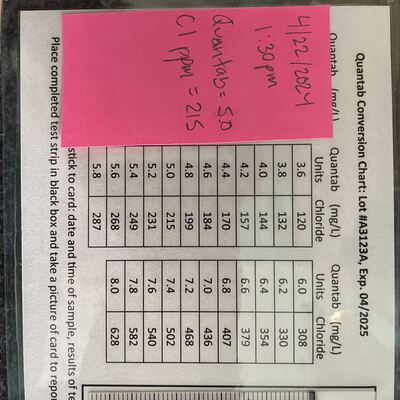 Quantab Conversion Chart: Lot #A3123A, Exp. 04/2025
Quantab (mg/L) Quantab (mg/L) Quantab (mg/L)
Units Chloride Units Chloride
3.6 120 6.0 308
3.8 132 6.2 330
4.0 144 6.4 354
4.2 157 6.6 379
4.4 170 6.8 407
4.6 184 7.0 436
4.8 199 7.2 468
5.0 215 7.4 502
5.2 231 7.6 540
5.4 249 7.8 582
5.6 268 8.0 628
5.8 287
4/22/2024
1:30pm
Quantab = 5.0
Cl ppm = 215
stick to card: date and time of sample, results of te
Place completed test strip in black box and take a picture of card to repor